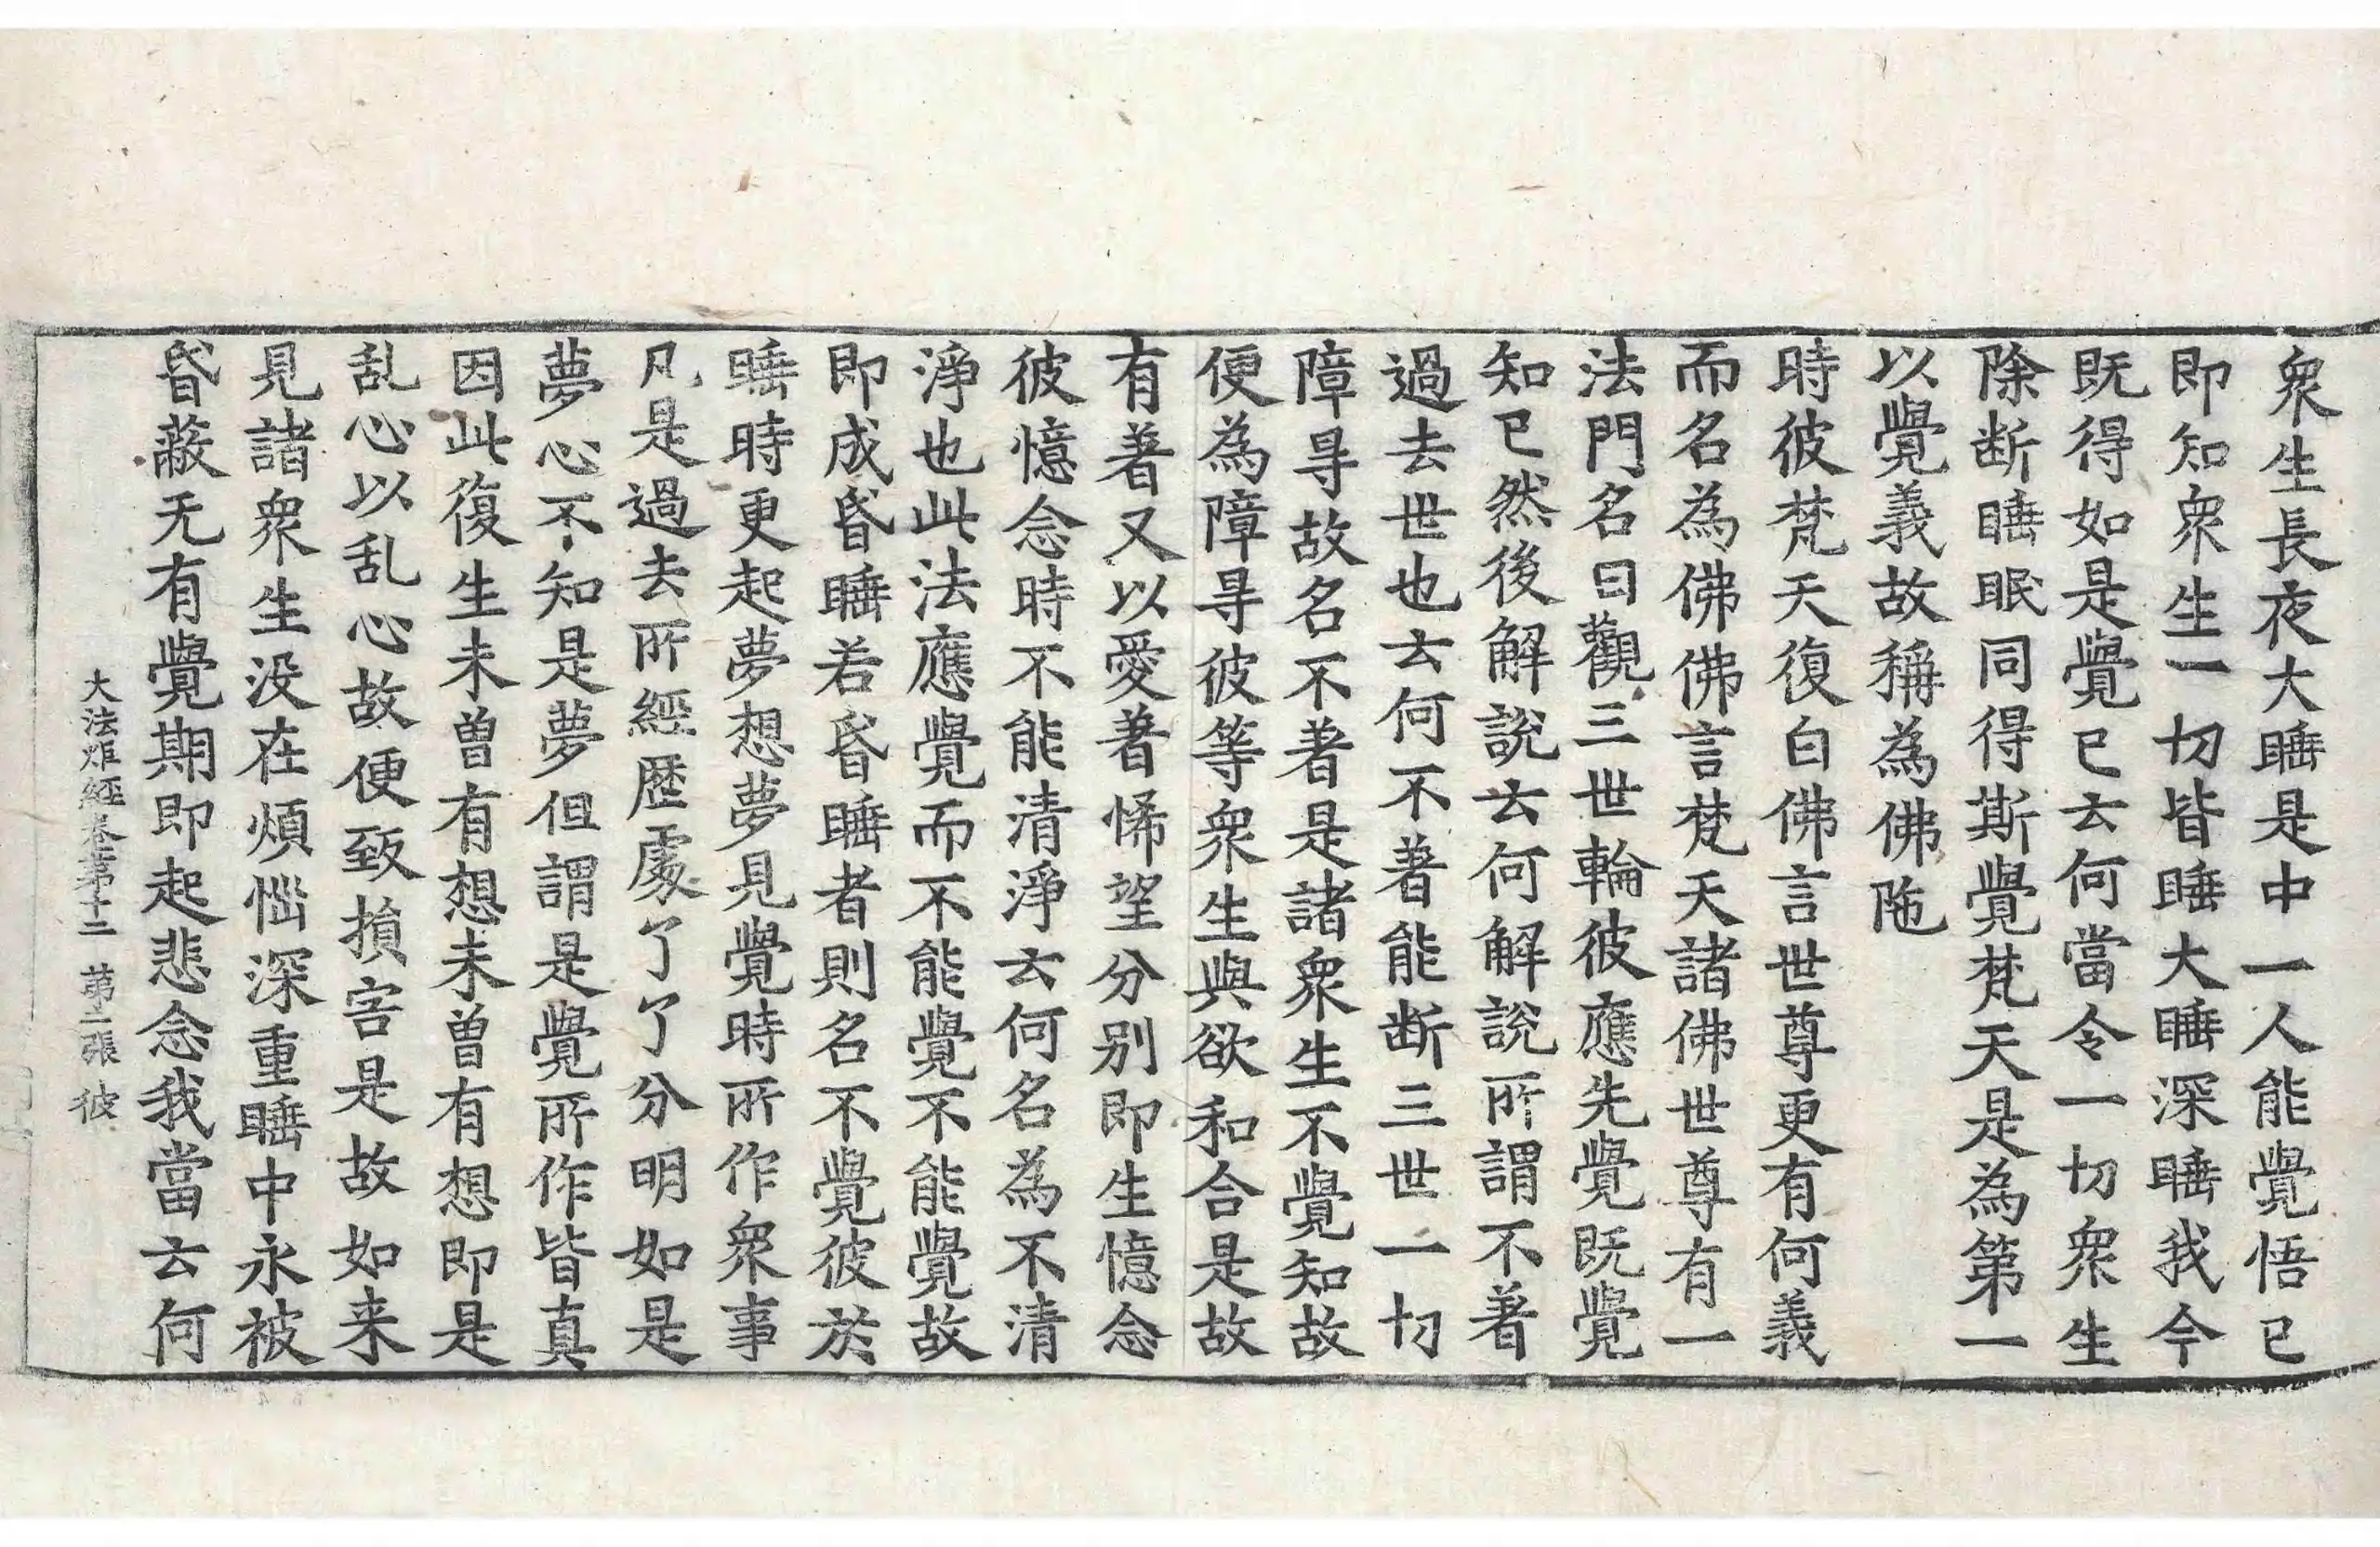 衆生長夜大睡是中一人能覺悟已
即知衆生一切皆睡大睡深睡我今
既得如是覺已云何當令一切衆生
除断睡眠同得斯覺梵天是為第一
以覺義故稱為佛陁
時彼梵天復白佛言世尊更有何義
而名為佛佛言梵天諸佛世尊有一
法門名曰觀三世輪彼應先覺既覺
知已然後解說云何解說所謂不著
過去世也云何不著能断三世一切
障㝵故名不著是諸衆生不覺知故
便為障㝵彼等衆生與欲和合是故
有著又以愛著悕望分別即生憶念
彼憶念時不能清淨云何名為不清
淨也此法應覺而不能覺不能覺故
即成昏睡若昏睡者則名不覺彼於
睡時更起夢想夢見覺時所作衆事
凡是過去所經歷處了了分明如是
夢心不知是夢但謂是覺所作皆真
因此復生未曾有想未曾有想即是
乱心以乱心故便致損害是故如来
見諸衆生没在煩惱深重睡中永被
昏蔽无有覺期即起悲念我當云何
大法炬經卷第十二 第二張 彼